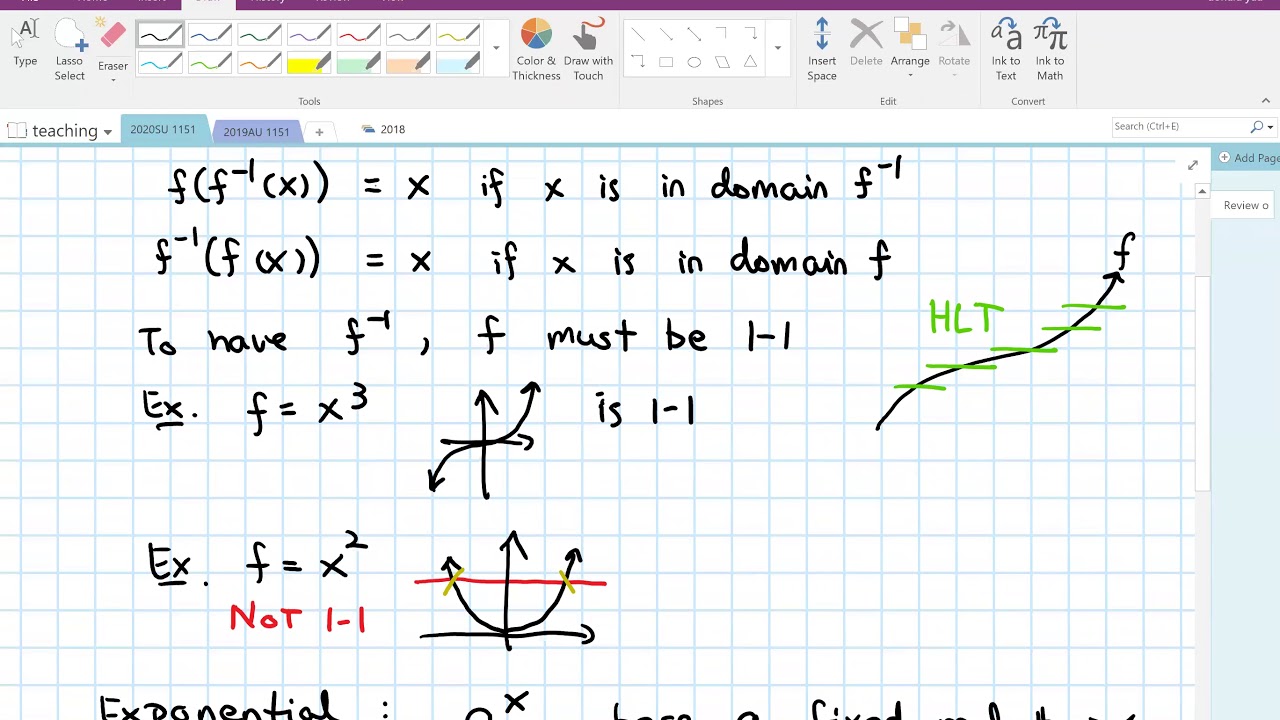 Insert
Draw
History
Review
View
Type
Lasso Select
Eraser
Color & Thickness
Draw with Touch
Insert Space
Delete
Arrange
Rotate
Ink to Text
Ink to Math
Tools
Shapes
Edit
Convert
teaching
2020SU 1151
2019AU 1151
2018
Search (Ctrl+E)
Add Page
Review o
f(f⁻¹(x)) = x if x is in domain f⁻¹
f⁻¹(f(x)) = x if x is in domain f
f
HLT
To have f⁻¹, f must be 1-1
Ex. f = x³ is 1-1
Ex. f = x²
NOT 1-1
Exponential : a^x base a fixed